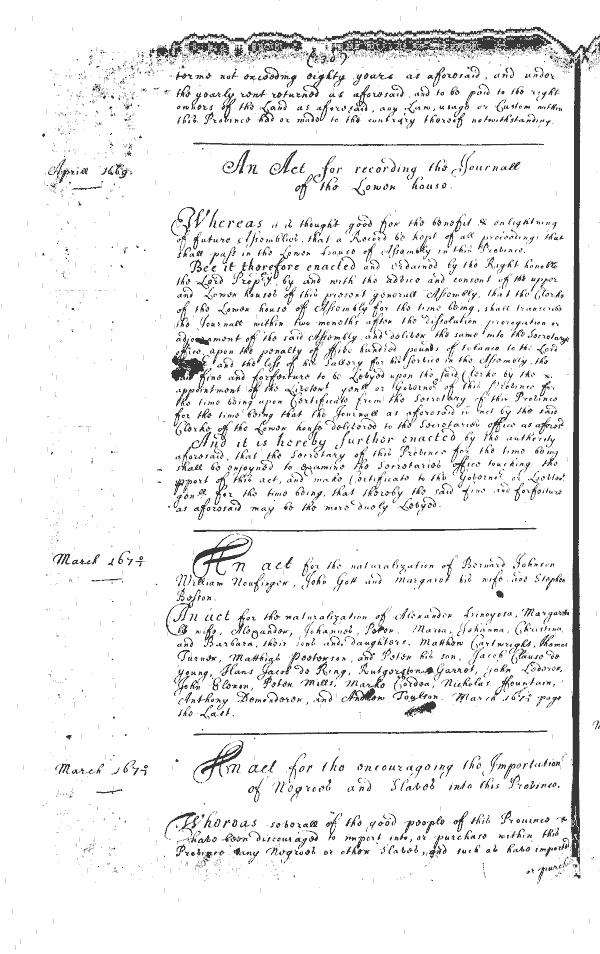 (130)
terme not exceeding eighty years as aforesaid, and under
the yearly rent returned as aforesaid, and to be paid to the right
owners of the Land as aforesaid, any Law, usage or Custom within
this Province had or made to the contrary thereof notwithstanding.
Aprill 1669
An Act for recording the Journall
of the Lower house.
Whereas it is thought good for the benefit & enlightning
of future Assemblies, that a Record be kept of all proceedings that
shall pass in the Lower house of Assembly in this Province.
Bee it therefore enacted and ordained by the Right honoble
the Lord Propry. by and with the advice and consent of the upper
and Lower houses of this present generall Assembly, that the Clerke
of the Lower house of Assembly for the time being, shall transcribe
the Journall within two months after the dissolution prorogation or
adjournment of the said Assembly, and deliver the same into the Secretarys
office, upon the penalty of five hundred pounds of tobacco to the Lord
and the loss of his Sallery for his service in the Assembly, the
said fine and forfeiture to be Levyed upon the said Clerke by the
appointment of the Lieutent. genll or Governor of this Province for
the time being upon Certificate from the Secretary of this Province
for the time being that the Journall as aforesaid is not by the said
Clerke of the Lower house delivered to the Secretaries office as aforesd
And it is hereby further enacted by the authority
aforesaid, that the Secretary of this Province for the time being
shall be enjoyned to examine the Secretaries office touching the
pport of this act, and make Certificate to the Governor or Lieutent
genll for the time being, that thereby the said fine and forfeiture
as aforesaid may be the more duely Levyed.
March 167½
An act for the naturalization of Bernard Johnson
William Neufinger, John Gott and Margarot his wife, and Stephen
Beston.
An act for the naturalization of Alexander D'inoyosa, Margaretta
his wife, Alexander, Johannes, Peter, Maria, Johanna, Christina,
and Barbara, their sons and daughters. Matthew Cartwright, Thomas
Turner, Matthias Peeterson, and Peter his son, Jacob Clause de
young, Hans Jacob de Ring, Rutgerston Garrot, John Lederer,
John Elexon, Peter Mills, Marke Cordea, Nicholas Fountain,
Anthony Demonderer, and Andrew Toulson. March 167½ page
the Last.
March 167½
An act for the encourageing the Importation
of Negroes and Slaves into this Province.
Whereas severall of the good people of this Province
have been discouraged to import into, or purchase within this
Province any Negroes or other Slaves, and such as have imported
or purch